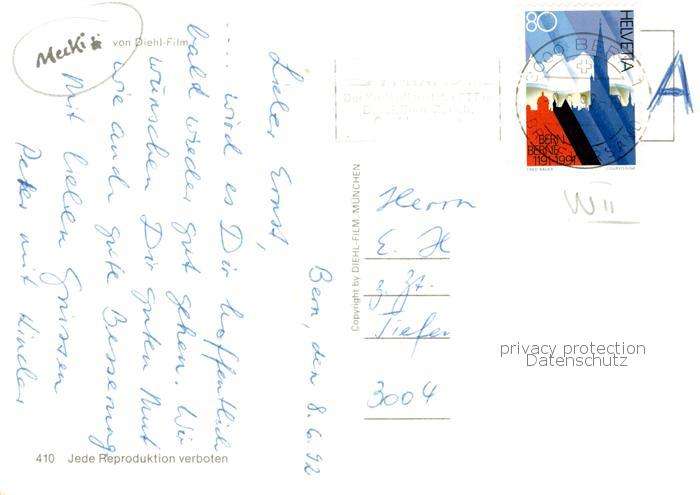 Mecki
von Diehl-Film
Bern, den 8.6.92
Lieber Ernst,
.... wird es Dir hoffentlich
bald wieder gut gehen. Wir
wünschen Dir guten Mut
wie auch gute Besserung
Mit lieben Grüssen
Peter mit Kinder
410 Jede Reproduktion verboten
Copyright by DIEHL-FILM, MÜNCHEN
80
HELVETIA
BERN
BERNE
1191-1991
A
WII
Herrn
E. H
z. Zt.
Tiefen
3004
privacy protection
Datenschutz